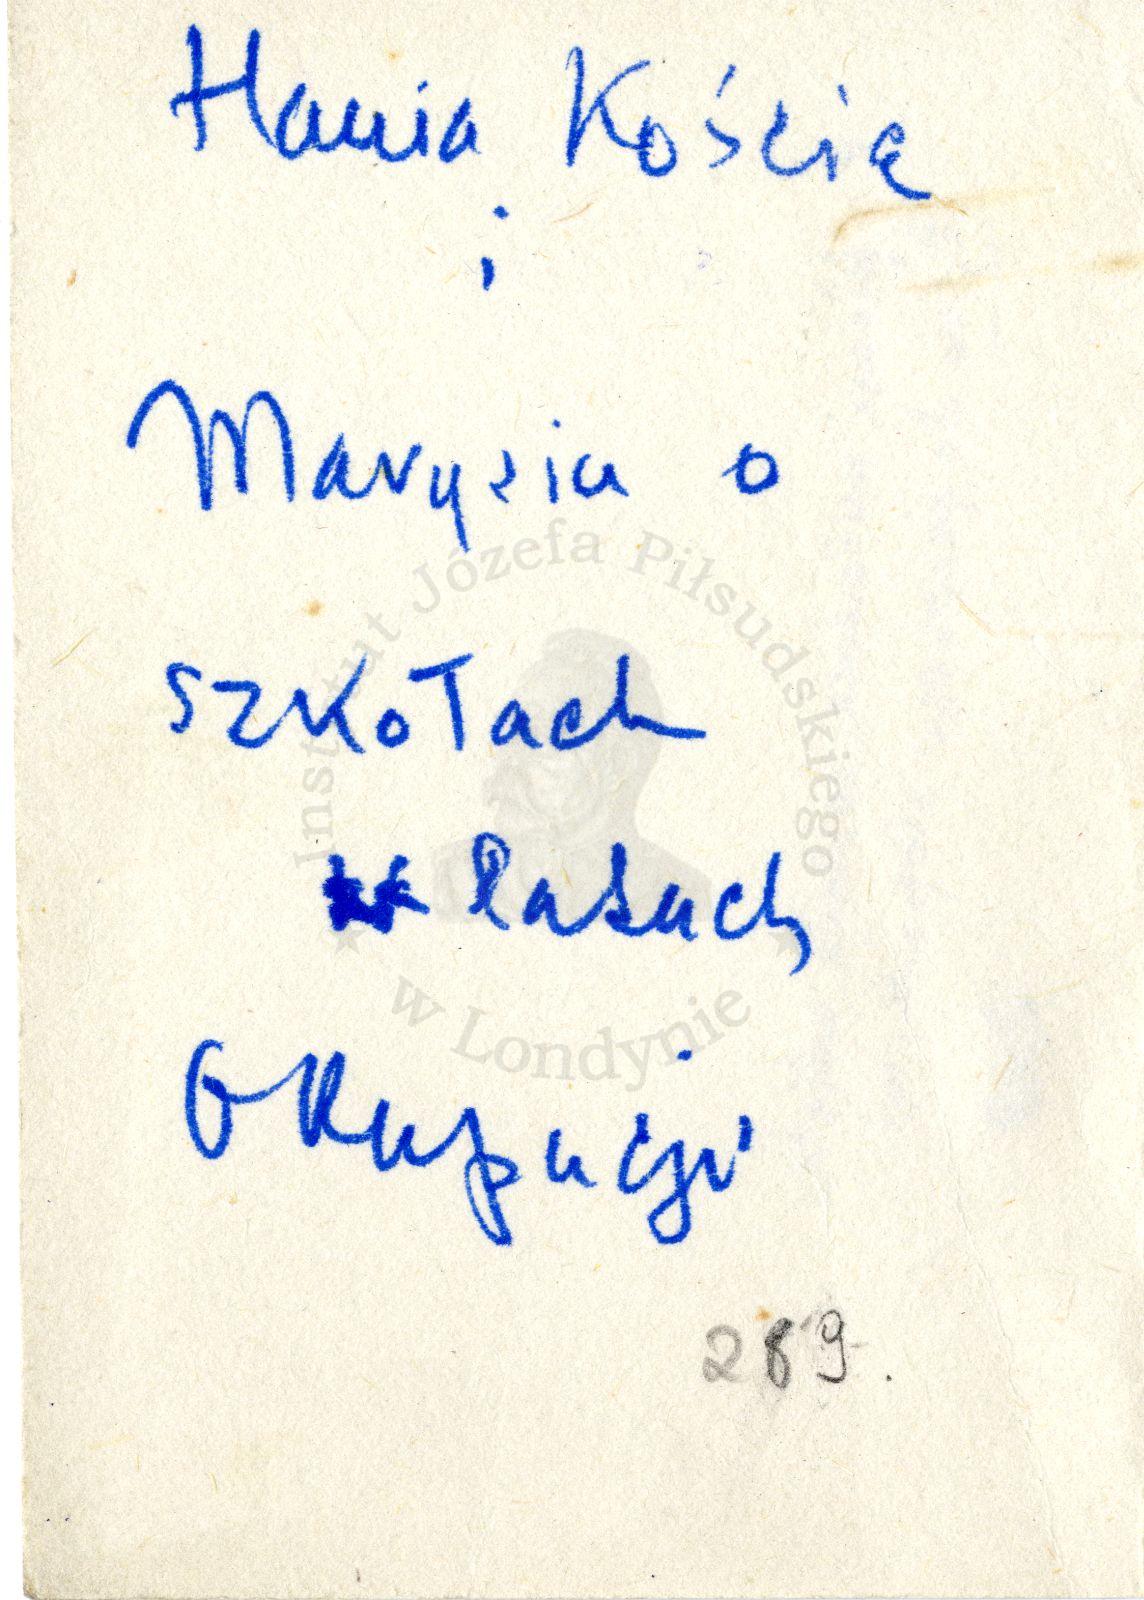 Hania Kościa
i
Marysia o
szkołach
Okupacji
289.
Instytut Józefa Piłsudskiego
w Londynie